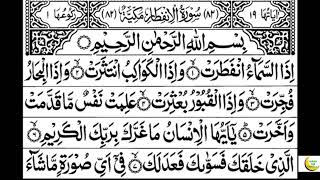 اٰيَاتُهَا ١٩ (٨٢) سُوْرَةُ الْاِنْفِطَارِ مَكِّيَّةٌ (٨٢) رُكُوْعُهَا ١
بِسْمِ اللّٰهِ الرَّحْمٰنِ الرَّحِيْمِ
اِذَا السَّمَآءُ انْفَطَرَتْ ۙ﴿١﴾ وَاِذَا الْكَوَاكِبُ انْتَثَرَتْ ۙ﴿٢﴾ وَاِذَا الْبِحَارُ
فُجِّرَتْ ۙ﴿٣﴾ وَاِذَا الْقُبُوْرُ بُعْثِرَتْ ۙ﴿٤﴾ عَلِمَتْ نَفْسٌ مَّا قَدَّمَتْ
وَاَخَّرَتْ ؕ﴿٥﴾ يٰٓاَيُّهَا الْاِنْسَانُ مَا غَرَّكَ بِرَبِّكَ الْكَرِيْمِ ۙ﴿٦﴾
الَّذِيْ خَلَقَكَ فَسَوّٰىكَ فَعَدَلَكَ ۙ﴿٧﴾ فِيْٓ اَيِّ صُوْرَةٍ مَّا شَآءَ